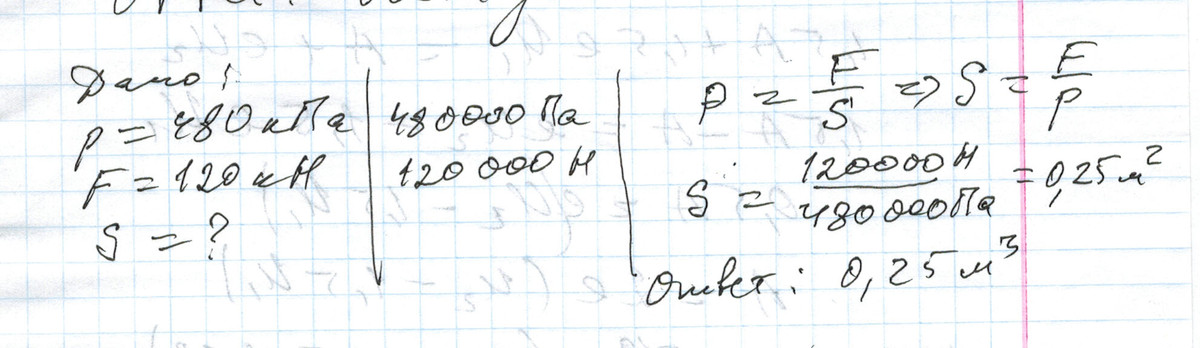 Дано:
p = 480 кПа | 480000 Па
F = 120 кН | 120 000 Н
S = ?
p = F/S => S = F/p
S = 120000 Н / 480000 Па = 0,25 м²
Ответ: 0,25 м³